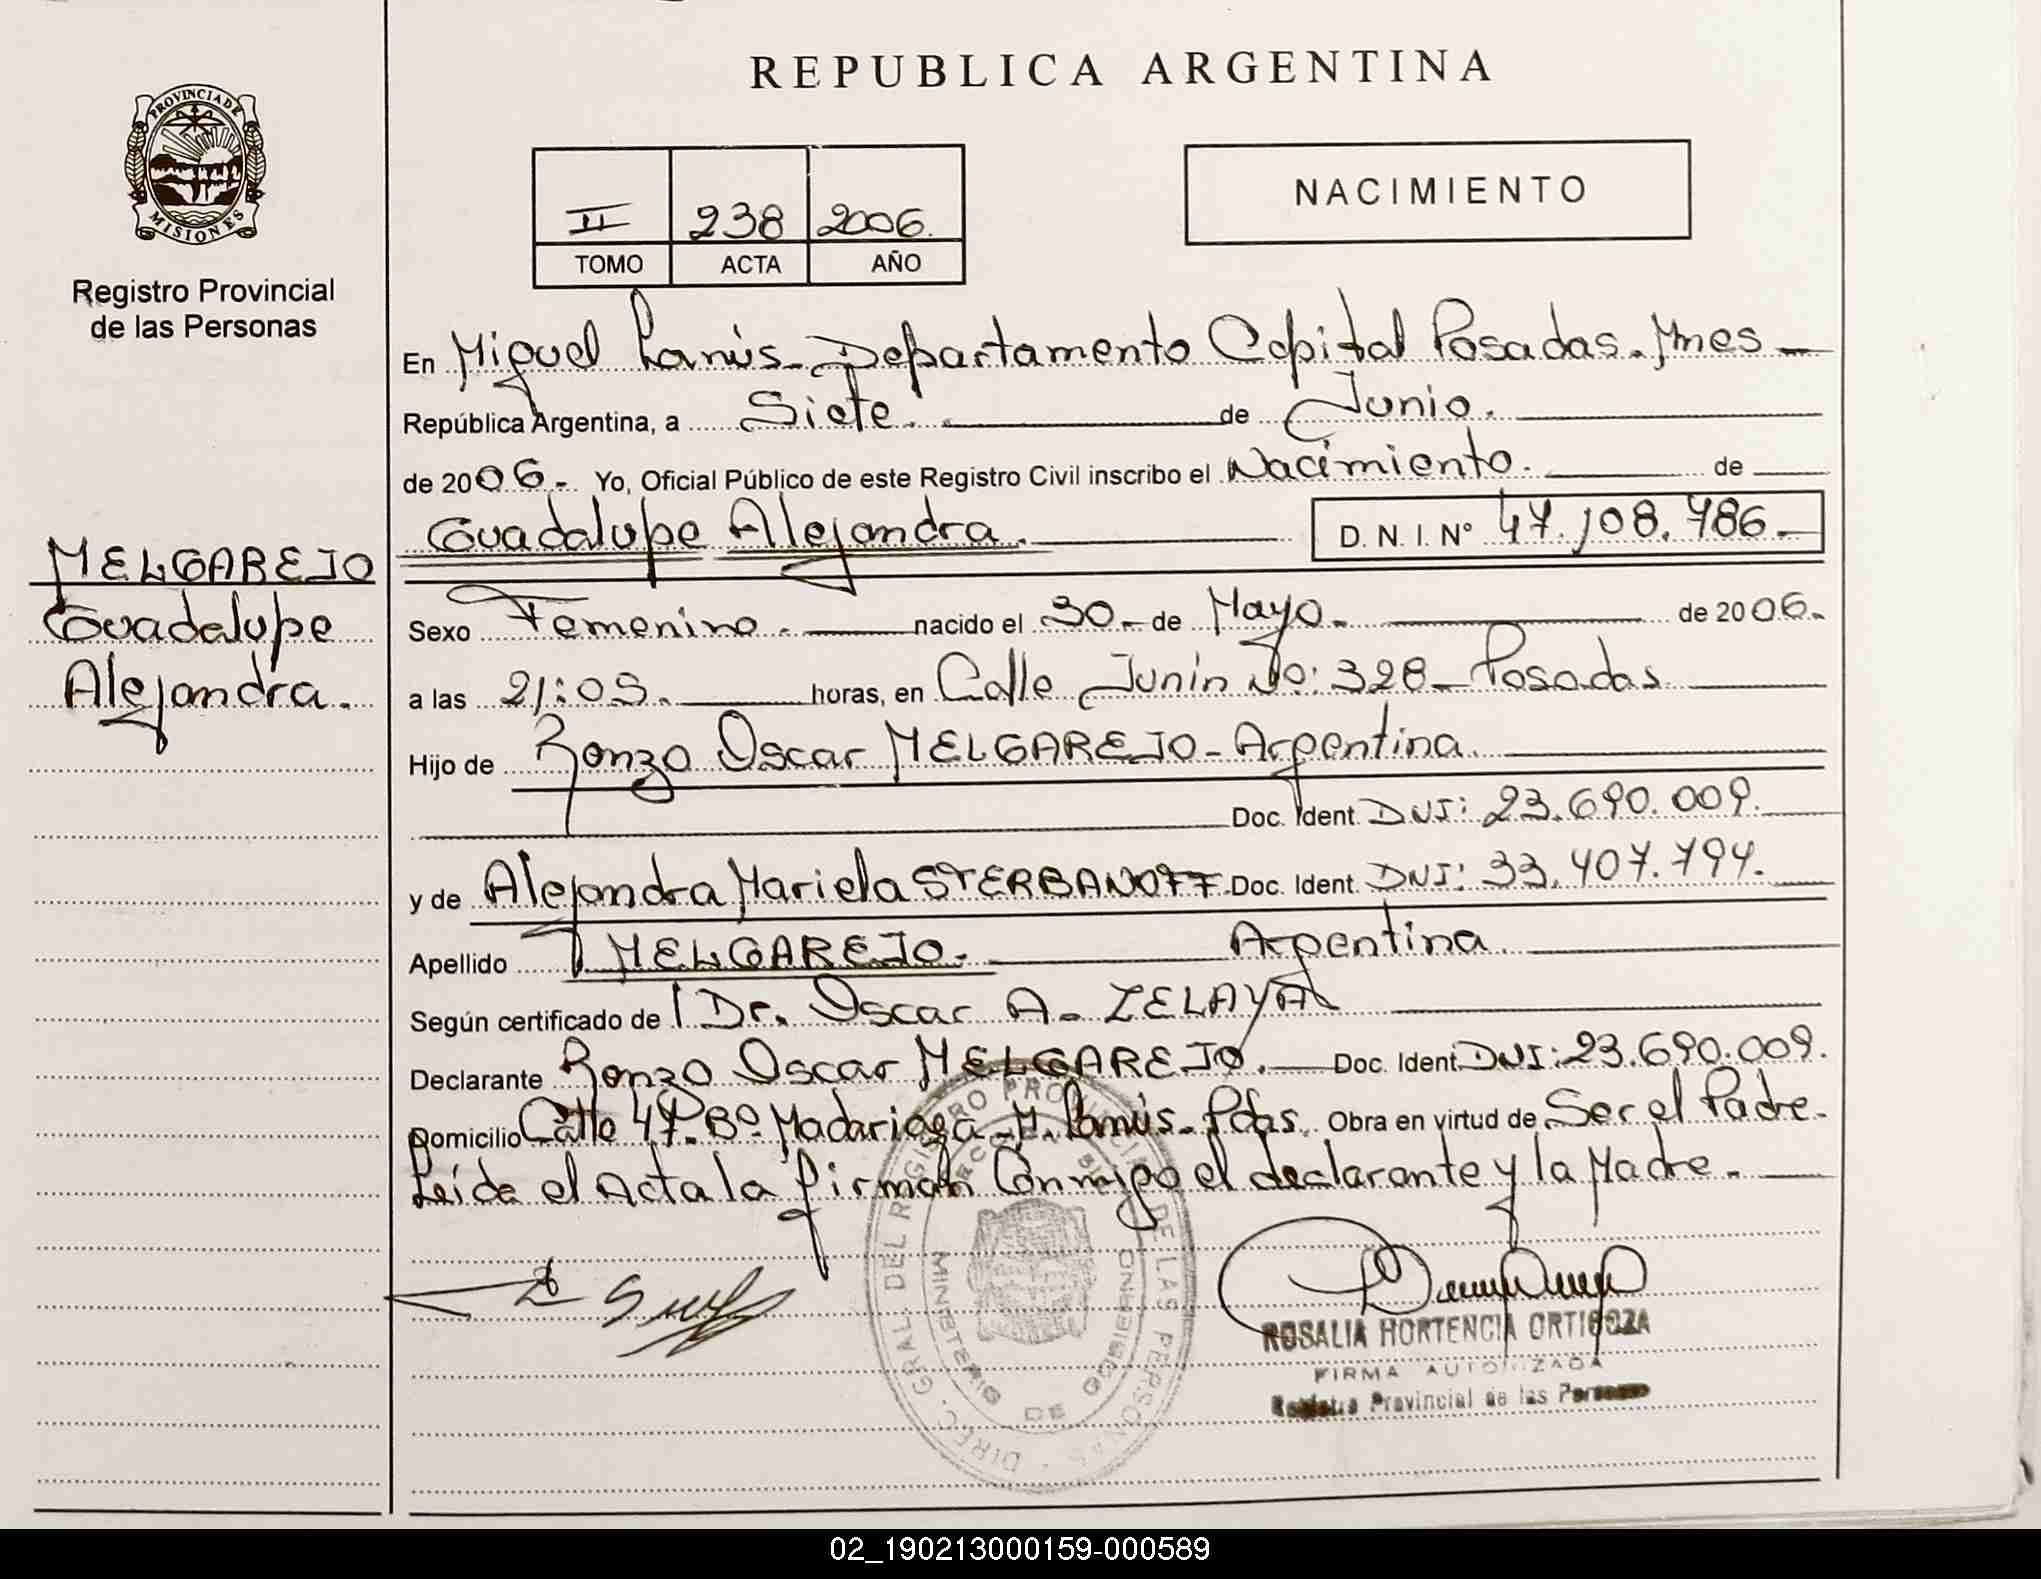 REPUBLICA ARGENTINA
PROVINCIA DE
MISIONES
Registro Provincial
de las Personas
II 238 2006.
TOMO ACTA AÑO
NACIMIENTO
En Miguel Lanús - Departamento Capital Posadas - Mnes -
República Argentina, a Siete. de Junio.
de 2006.- Yo, Oficial Público de este Registro Civil inscribo el Nacimiento. de
Guadalupe Alejandra. D.N.I. Nº 47.108.786.-
MELGAREJO
Guadalupe
Alejandra.
Sexo Femenino. nacido el 30 - de Mayo. de 2006.-
a las 21:05. horas, en Calle Junín No: 328 - Posadas
Hijo de Renzo Oscar MELGAREJO - Argentina
Doc. Ident. DNI: 23.690.009.
y de Alejandra Mariela STERBANOFF Doc. Ident. DNI: 33.407.794.
Apellido MELGAREJO. Argentina
Según certificado de Dr. Oscar A. ZELAYA
Declarante Renzo Oscar MELGAREJO. Doc. Ident. DNI: 23.690.009.
Domicilio Calle 47 - Bº. Madariaga - M. Lanús - Pdas. Obra en virtud de Ser el Padre.
Leída el Acta la firman Conmigo el declarante y la Madre.-
DIREC. GRAL. DEL REGISTRO PROVINCIAL DE LAS PERSONAS
MINISTERIO DE GOBIERNO
ROSALIA HORTENCIA ORTIGOZA
FIRMA AUTORIZADA
Registro Provincial de las Personas
02_190213000159-000589